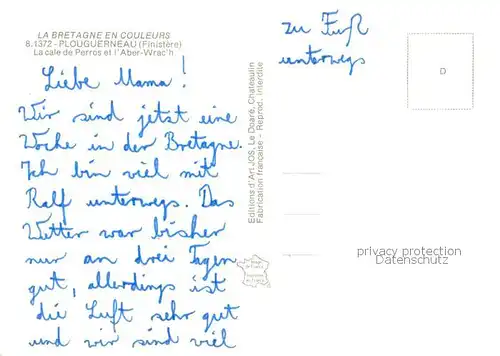 LA BRETAGNE EN COULEURS
8.1372 - PLOUGUERNEAU (Finistère)
La cale de Perros et l'Aber-Wrac'h
Liebe Mama!
Wir sind jetzt eine
Woche in der Bretagne.
Ich bin viel mit
Ralf unterwegs. Das
Wetter war bisher
nur an drei Tagen
gut, allerdings ist
die Luft sehr gut
und wir sind viel
zu Fuß
unterwegs
Editions d'Art JOS, Le Doaré, Chateaulin
Fabrication française - Reprod. interdite
D
privacy protection
Datenschutz